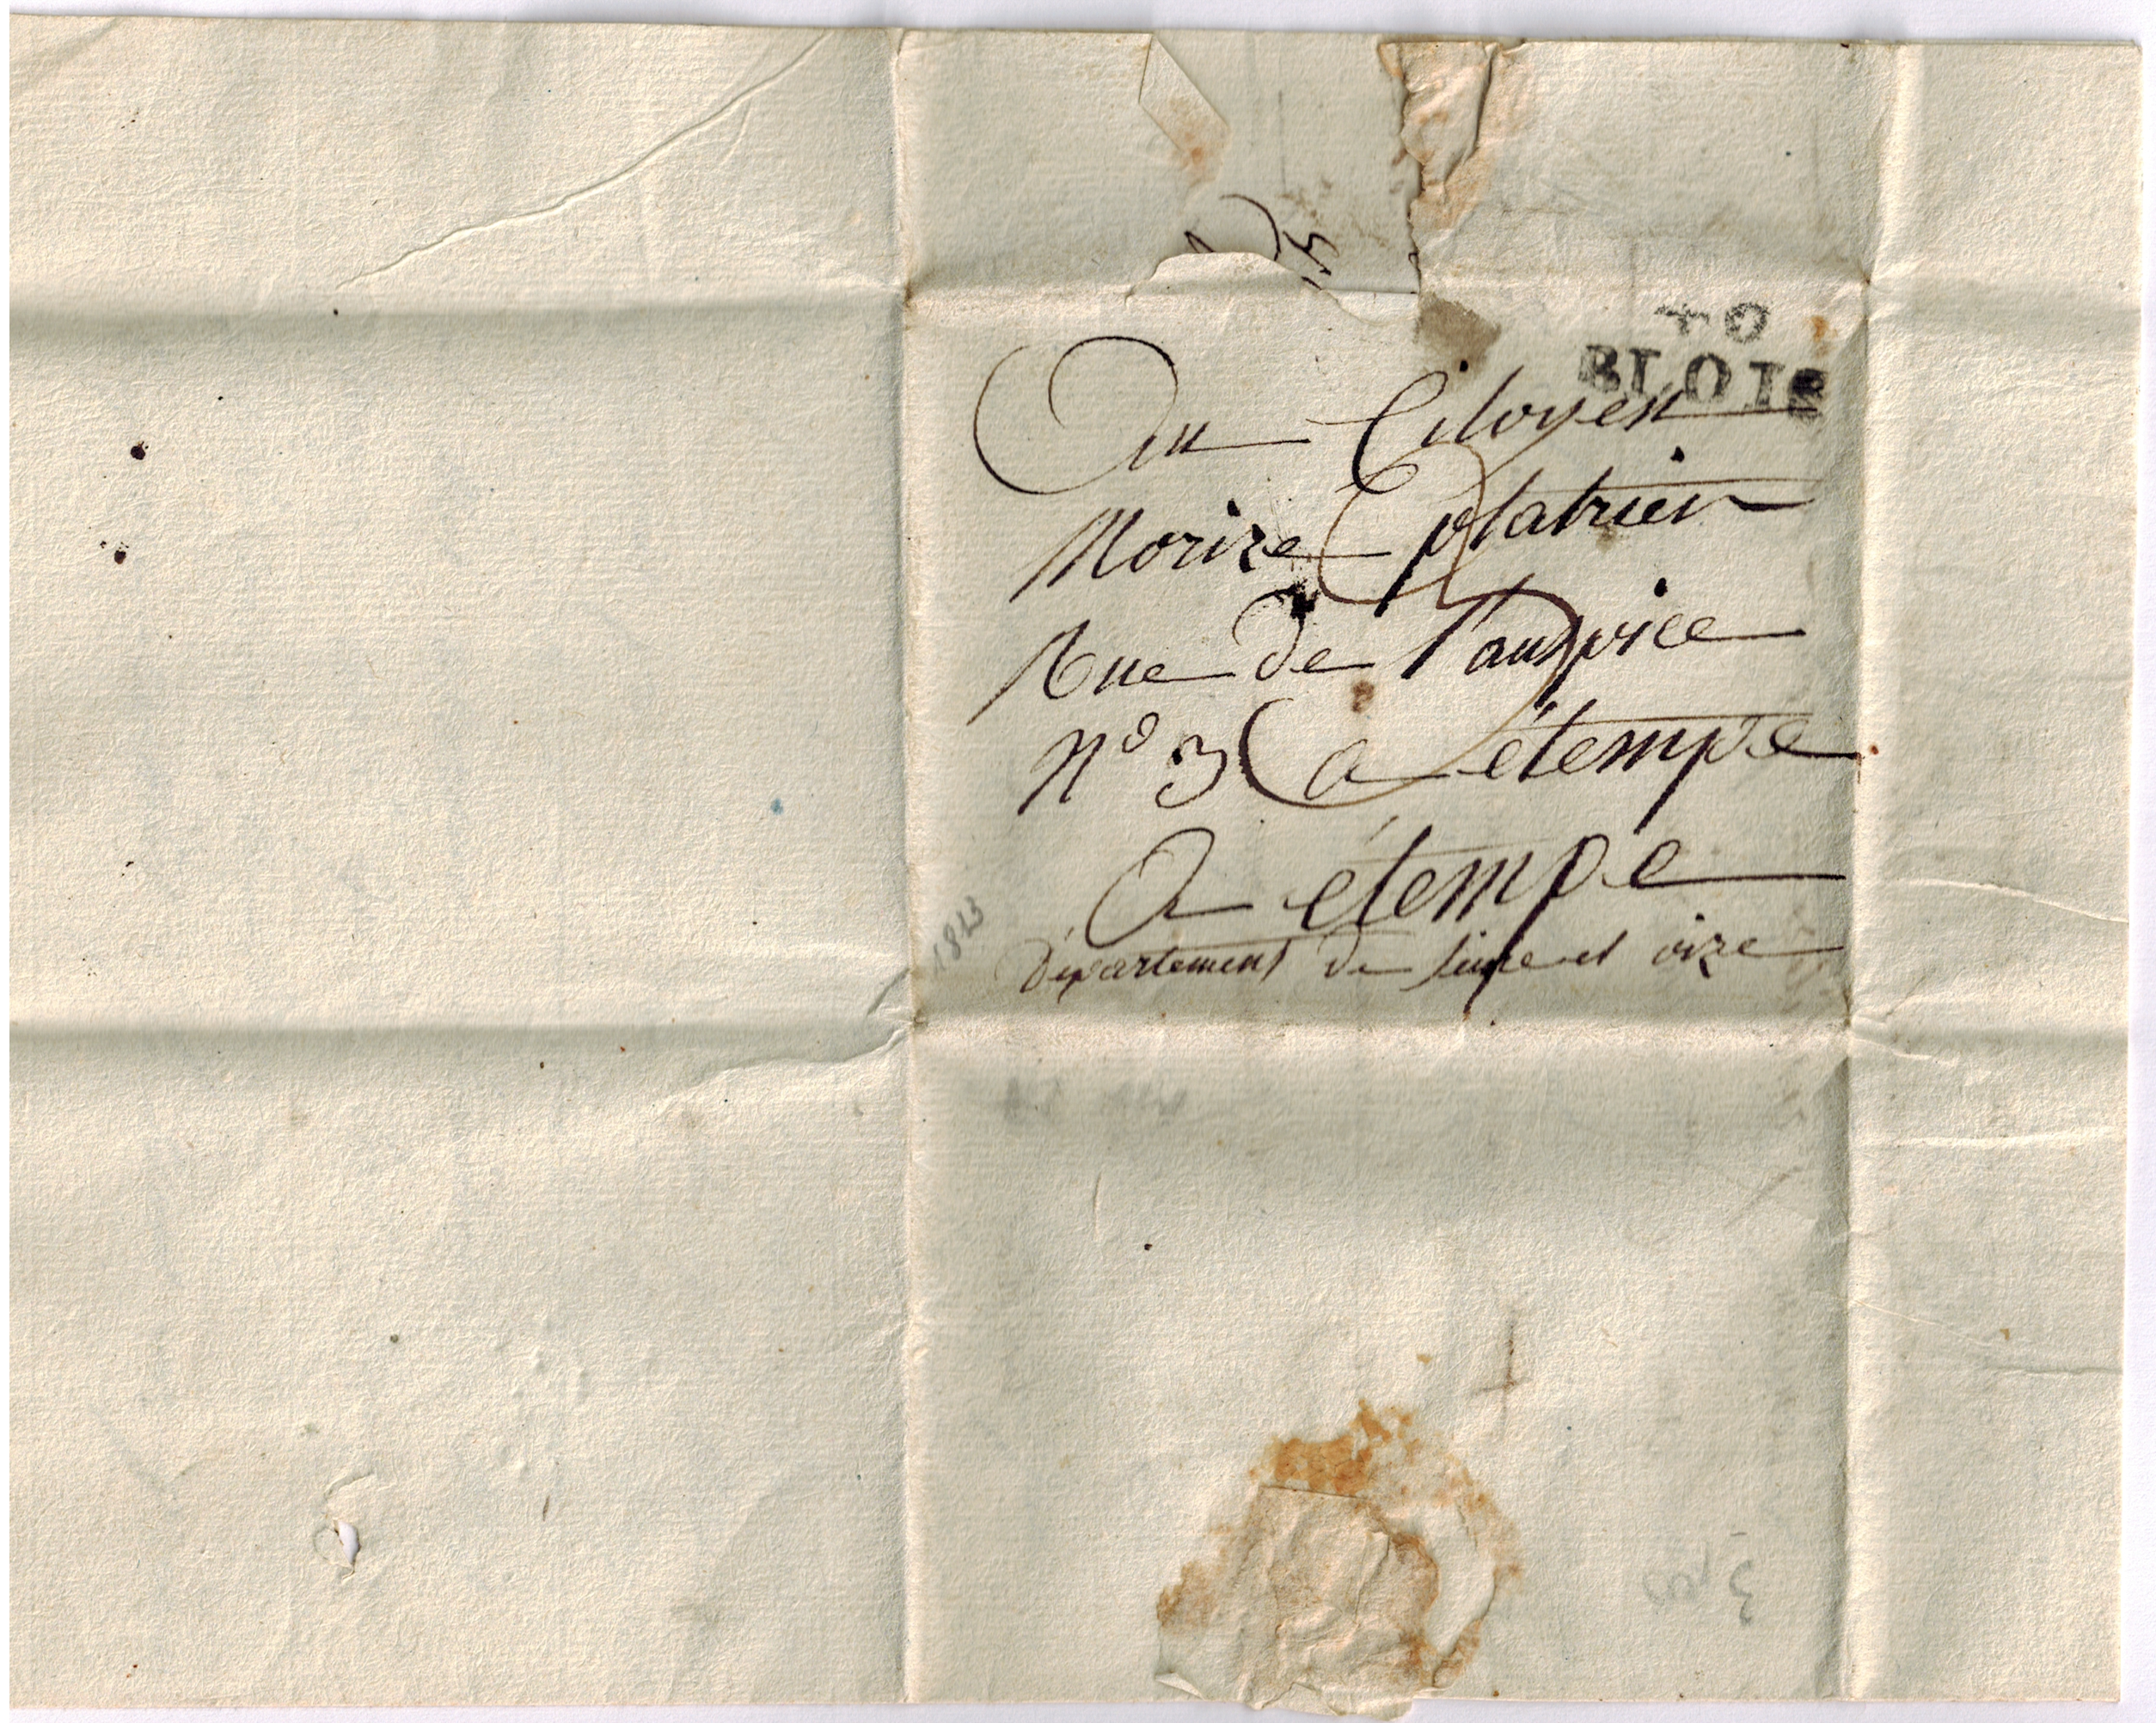 40
BLOIS
Au Citoyen
Morize platrier
Rue de l'auspice
N° 3 a étempe
A étempe
département de seine et oize
1813